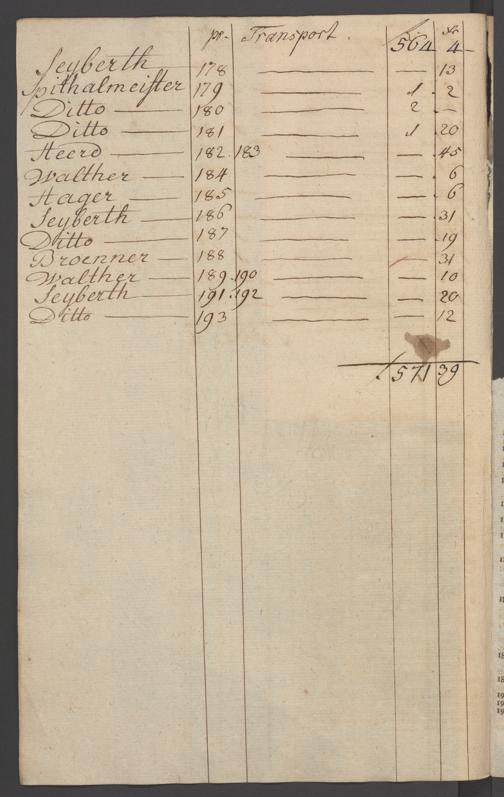 pr. Transport. f 564 xr 4
Seyberth 178 — 13
Spithalmeister 179 1 . 2
Ditto 180 2 —
Ditto 181 1 . 20
Heerd 182. 183 — 45
Walther 184 — 6
Hager 185 — 6
Seyberth 186 — 31
Ditto 187 — 19
Broenner 188 — 31
Walther 189. 190 — 10
Seyberth 191. 192 — 20
Ditto 193 — 12
f 571 39